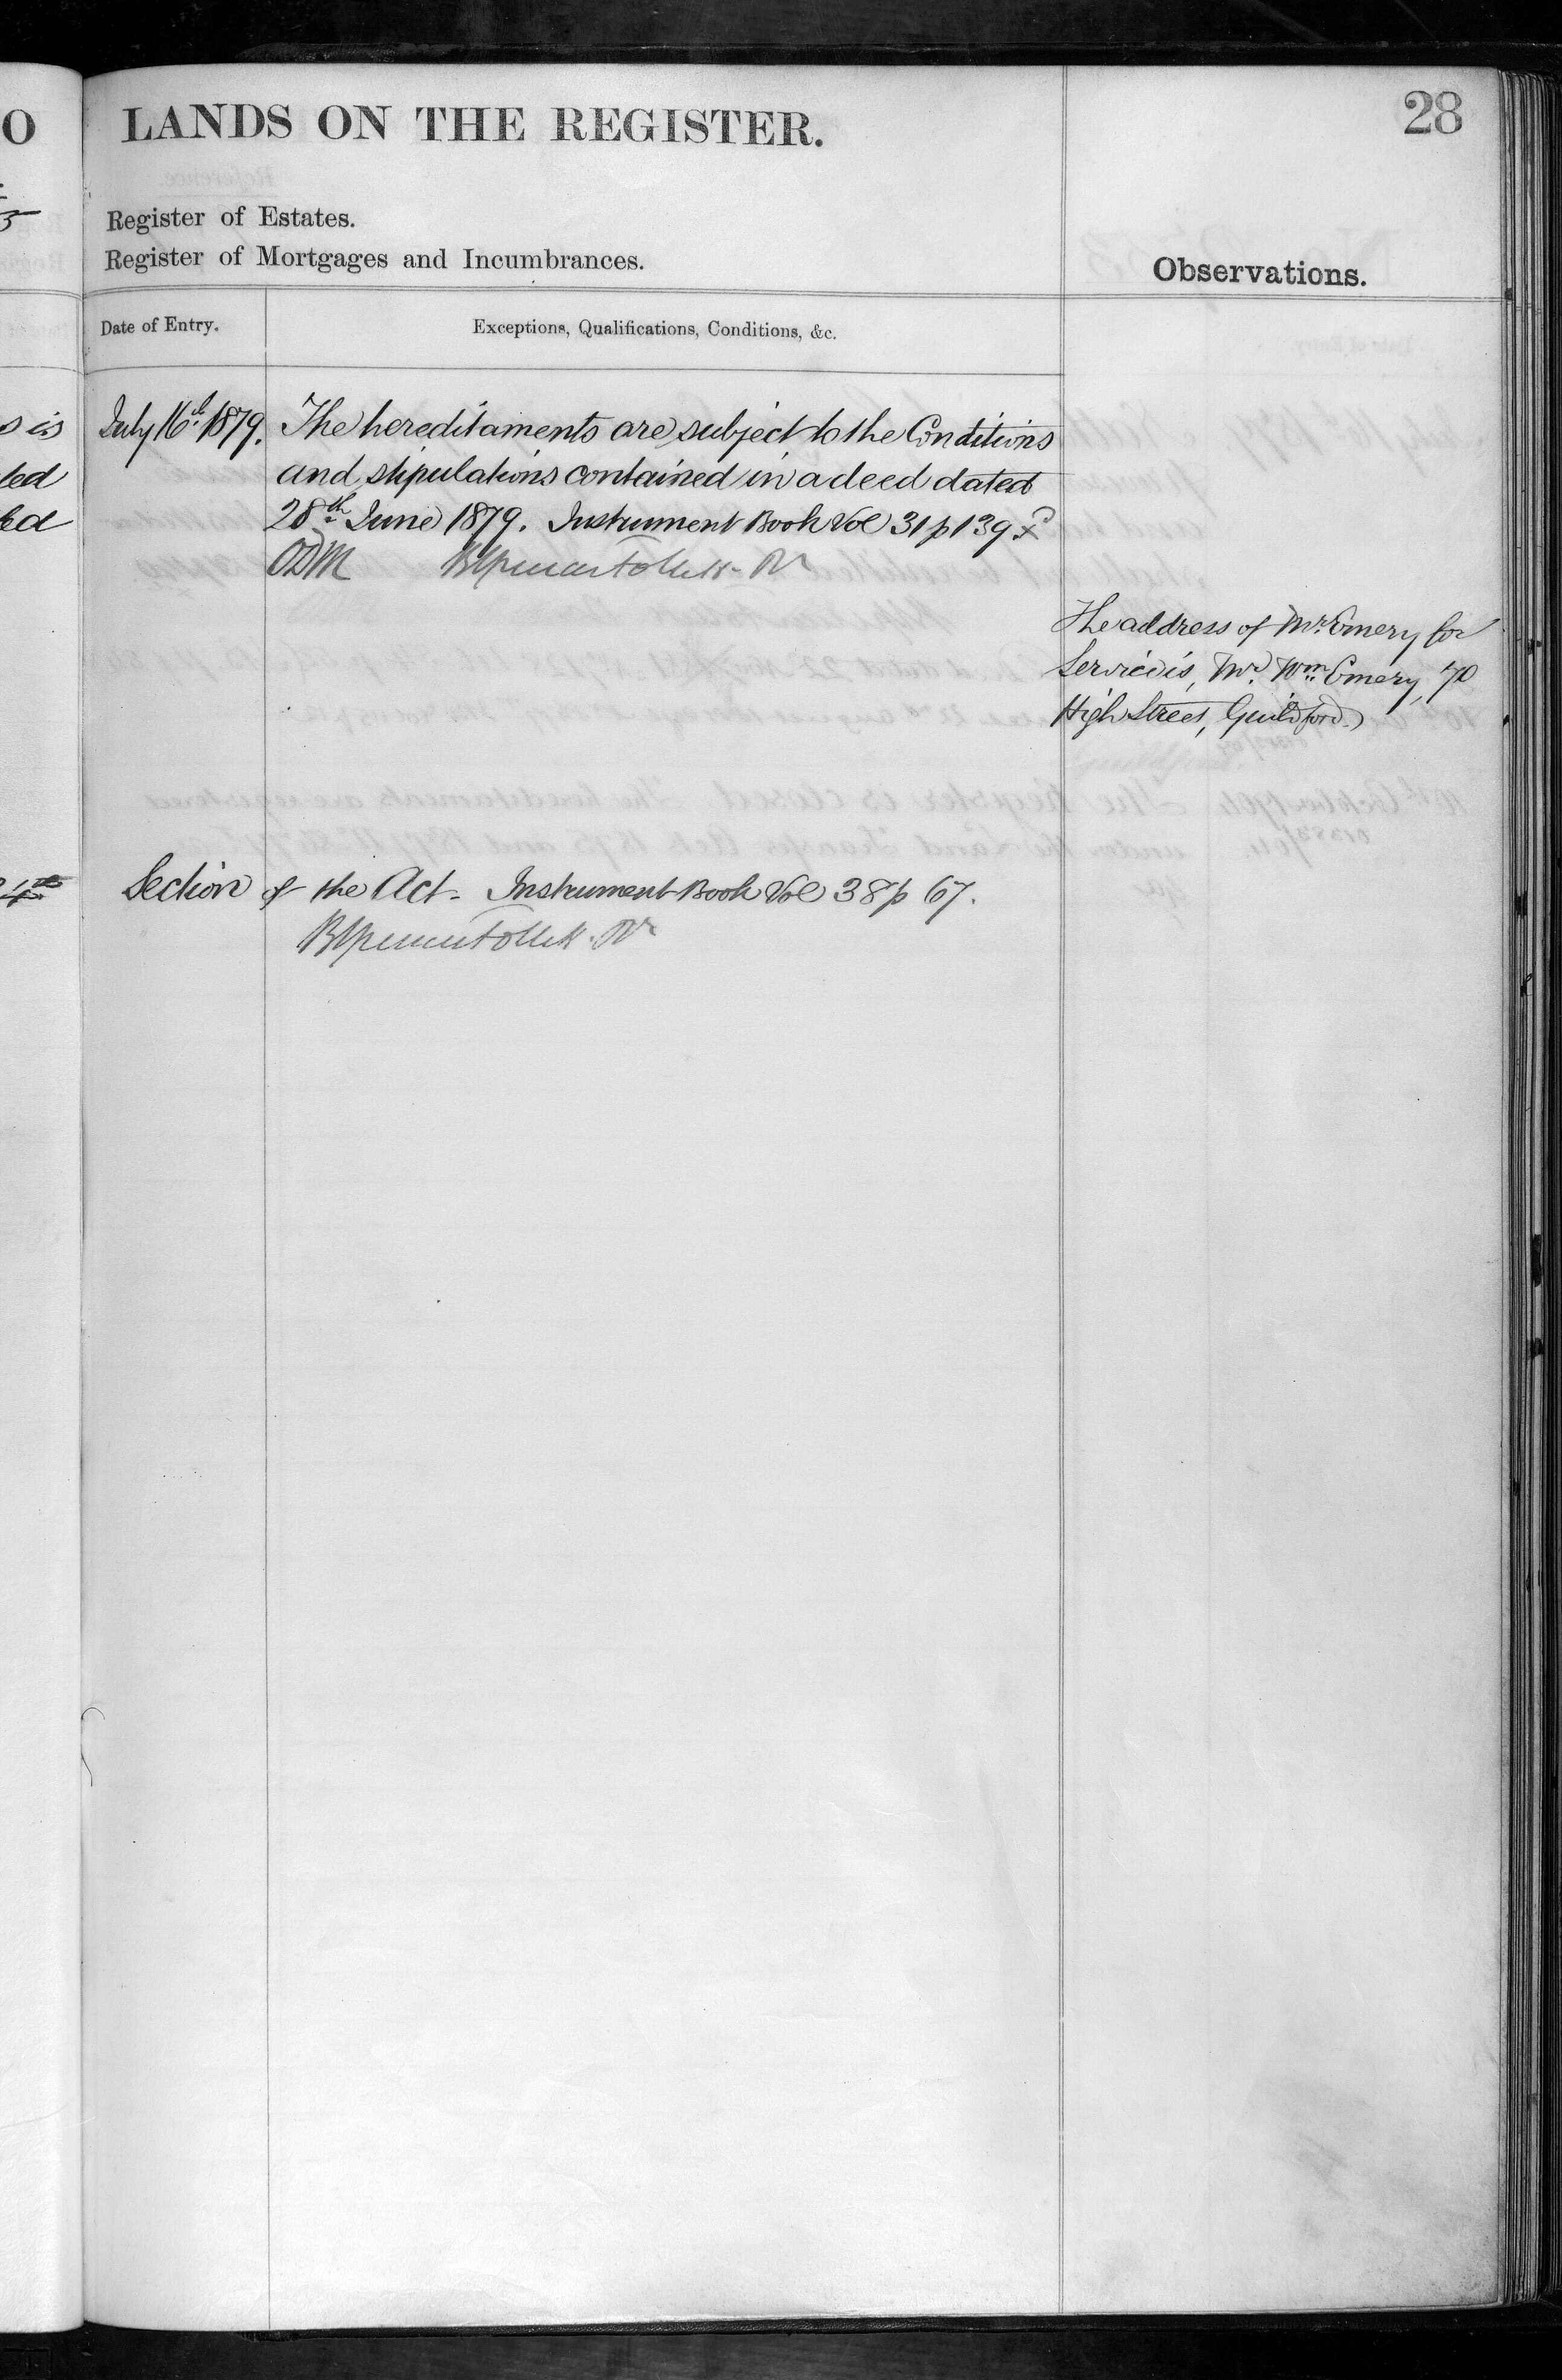 O
LANDS ON THE REGISTER.
28
Register of Estates.
Register of Mortgages and Incumbrances.
Observations.
Date of Entry.
Exceptions, Qualifications, Conditions, &c.
July 16th 1879.
The hereditaments are subject to the Conditions
and stipulations contained in a deed dated
28th June 1879. Instrument Book Vol 31 p 139
The address of Mr. Emery for
Service is, Mr. Wm. Emery, 70
High Street, Guildford.
4th
Section of the Act - Instrument Book Vol 38 p 67.